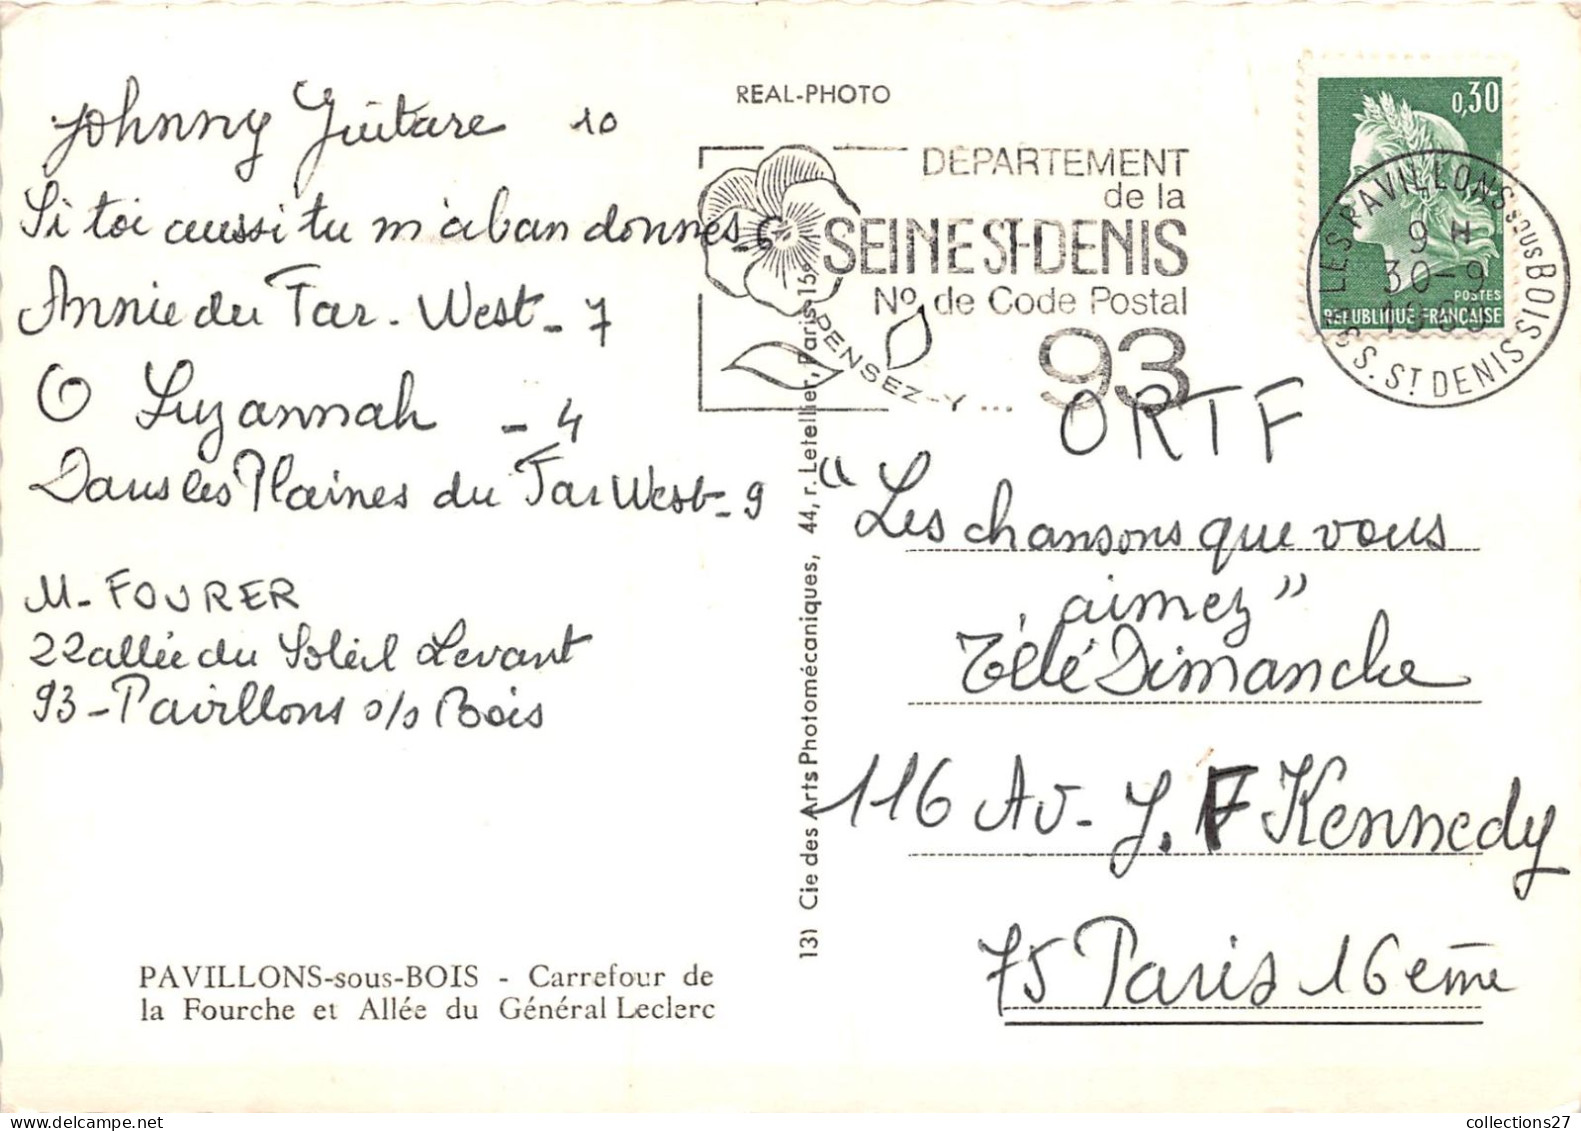 Johnny Guitare 10
Si toi aussi tu m'abandonnes - 6
Annie du Far-West - 7
O Suzannah - 4
Dans les Plaines du Far West - 9
M- FOURER
22 allée du Soleil Levant
93 - Pavillons s/s Bois
PAVILLONS-sous-BOIS - Carrefour de
la Fourche et Allée du Général Leclerc
REAL-PHOTO
131 Cie des Arts Photomécaniques, 44, r. Letellier, Paris-15e
DEPARTEMENT
de la
SEINE ST-DENIS
No. de Code Postal
93
PENSEZ-Y...
0,30
POSTES
REPUBLIQUE FRANÇAISE
93 LES PAVILLONS SOUS BOIS
9 H
30-9
1969
S. ST DENIS
ORTF
"Les chansons que vous
aimez"
Télé Dimanche
116 Av- J. F Kennedy
75 Paris 16ème
collections27